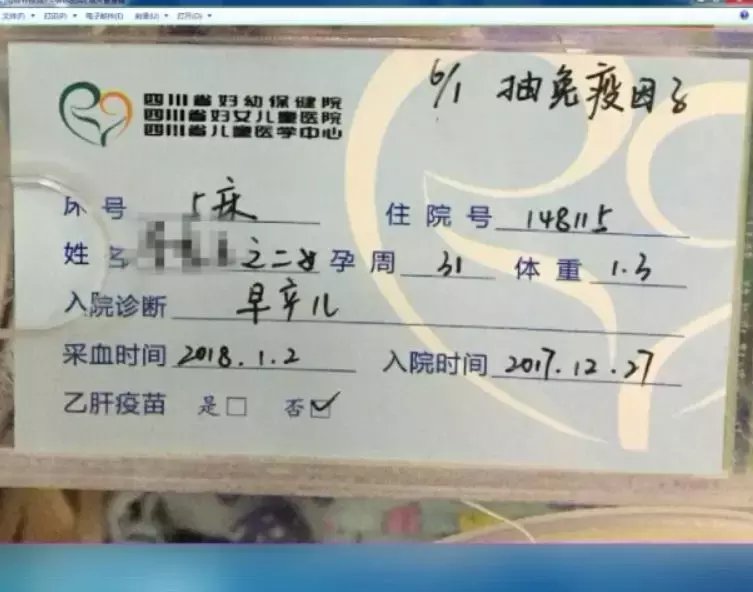 文件(F) 打印(P) 电子邮件(E) 刻录(U) 打开(O)
6/1 抽免疫因子
四川省妇幼保健院
四川省妇女儿童医院
四川省儿童医学中心
床号 5床 住院号 148115
姓名 之二女 孕周 31 体重 1.3
入院诊断 早产儿
采血时间 2018.1.2 入院时间 2017.12.27
乙肝疫苗 是□ 否☑